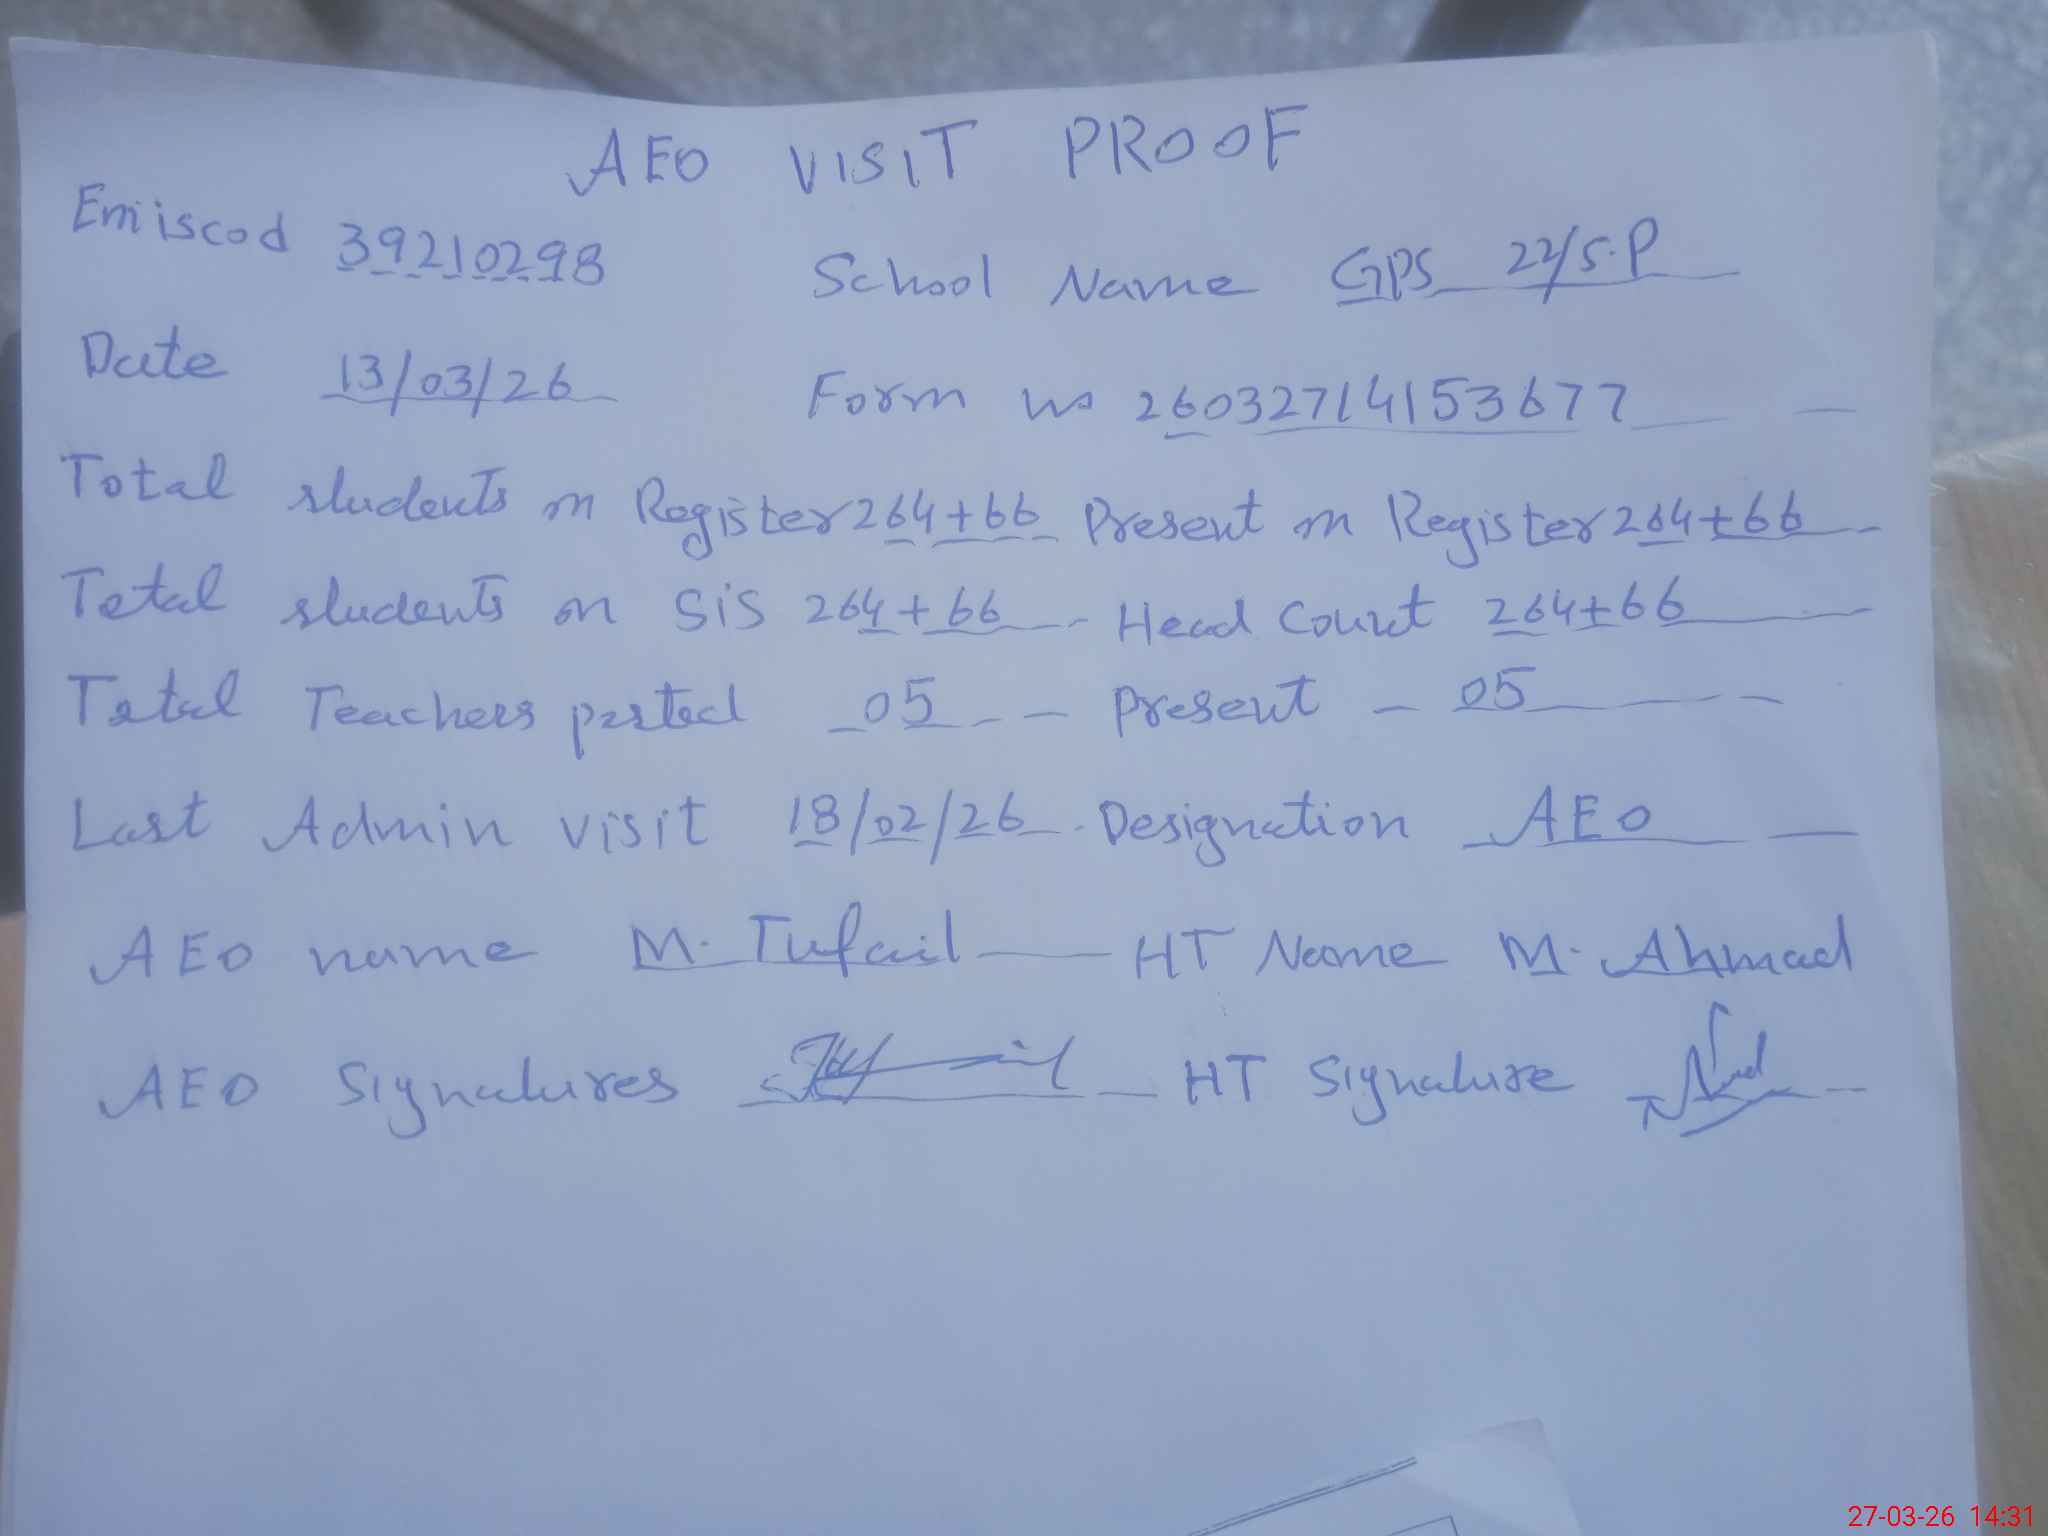 AEO VISIT PROOF
Emiscod 39210298 School Name GPS 22/S.P
Date 13/03/26 Form no 26032714153677
Total students on Register 264+66 Present on Register 264+66
Total students on SiS 264+66 Head Count 264+66
Total Teachers posted 05 Present 05
Last Admin visit 18/02/26 Designation AEO
AEO name M. Tufail HT Name M. Ahmad
AEO Signatures HT Signature
27-03-26 14:31